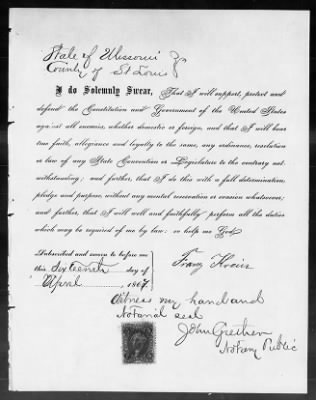 State of Missouri
County of St Louis
I do Solemnly Swear, That I will support, protect and
defend the Constitution and Government of the United States
against all enemies, whether domestic or foreign, and that I will bear
true faith, allegiance and loyalty to the same, any ordinance, resolution
or law of any State Convention or Legislature to the contrary not-
withstanding; and further, that I do this with a full determination,
pledge and purpose, without any mental reservation or evasion whatsoever;
and further, that I will well and faithfully perform all the duties
which may be required of me by law: so help me God.
Subscribed and sworn to before me
this Sixteenth day of
April, 1867
Franz
Witness my hand and
Notarial seal
John Grether
Notary Public